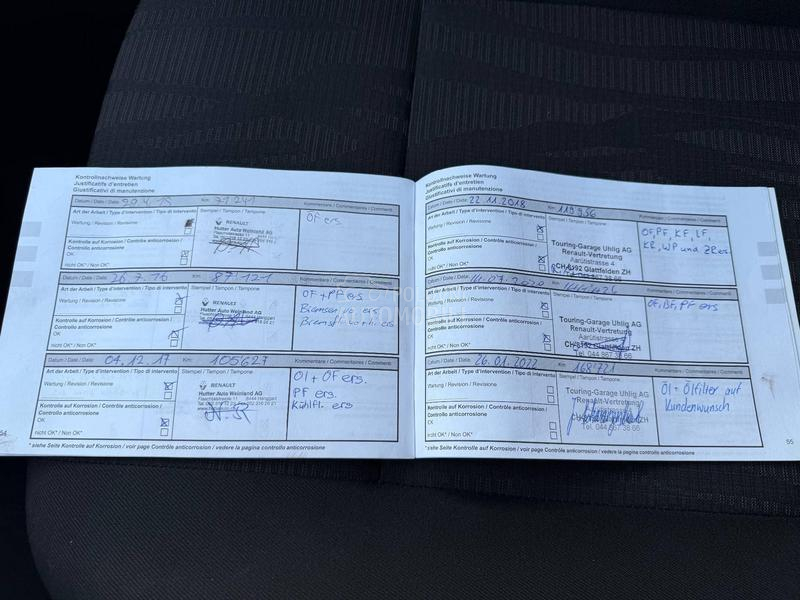 Kontrollnachweise Wartung
Justificatifs d'entretien
Giustificativi di manutenzione
Datum / Date / Data: Km: 71241 Kommentare / Commentaires / Commenti:
Art der Arbeit / Type d'intervention / Tipo di intervento Stempel / Tampon / Tampone:
Wartung / Revision / Revisione
RENAULT
Hutter Auto Weinland AG
ÖF ers.
Kontrolle auf Korrosion / Contrôle anticorrosion /
Controllo anticorrosione
OK
nicht OK* / Non OK*
Datum / Date / Data: 26.7.16 Km: 87121 Kommentare / Commentaires / Commenti:
Art der Arbeit / Type d'intervention / Tipo di intervento Stempel / Tampon / Tampone:
Wartung / Revision / Revisione
RENAULT
Hutter Auto Weinland AG
ÖF + PF ers
Kontrolle auf Korrosion / Contrôle anticorrosion /
Controllo anticorrosione
OK
nicht OK* / Non OK*
Datum / Date / Data: 04.12.17 Km: 105627 Kommentare / Commentaires / Commenti:
Art der Arbeit / Type d'intervention / Tipo di intervento Stempel / Tampon / Tampone:
Wartung / Revision / Revisione
RENAULT
Hutter Auto Weinland AG
Öl + ÖF ers.
PF ers.
Kühlfl. ers
Kontrolle auf Korrosion / Contrôle anticorrosion /
Controllo anticorrosione
OK
nicht OK* / Non OK*
*siehe Seite Kontrolle auf Korrosion / voir page Contrôle anticorrosion / vedere la pagina controllo anticorrosione
54
Kontrollnachweise Wartung
Justificatifs d'entretien
Giustificativi di manutenzione
Datum / Date / Data: 22.11.2018 Km: 119956 Kommentare / Commentaires / Commenti:
Art der Arbeit / Type d'intervention / Tipo di intervento Stempel / Tampon / Tampone:
Wartung / Revision / Revisione
Touring-Garage Uhlig AG
Renault-Vertretung
Aarütistrasse 4
CH-8192 Glattfelden ZH
ÖF, PF, KF, LF,
KR, WP und ZR ers
Kontrolle auf Korrosion / Contrôle anticorrosion /
Controllo anticorrosione
OK
nicht OK* / Non OK*
Datum / Date / Data: Km: Kommentare / Commentaires / Commenti:
Art der Arbeit / Type d'intervention / Tipo di intervento Stempel / Tampon / Tampone:
Wartung / Revision / Revisione
Touring-Garage Uhlig AG
Renault-Vertretung
CH-8192 Glattfelden ZH
Tel. 044 867 38 66
ÖF, BF, PF ers
Kontrolle auf Korrosion / Contrôle anticorrosion /
Controllo anticorrosione
OK
nicht OK* / Non OK*
Datum / Date / Data: 26.01.2022 Km: 168721 Kommentare / Commentaires / Commenti:
Art der Arbeit / Type d'intervention / Tipo di intervento Stempel / Tampon / Tampone:
Wartung / Revision / Revisione
Touring-Garage Uhlig AG
Renault-Vertretung
Tel. 044 867 38 66
Öl + Ölfilter auf
Kundenwunsch
Kontrolle auf Korrosion / Contrôle anticorrosion /
Controllo anticorrosione
OK
nicht OK* / Non OK*
*siehe Seite Kontrolle auf Korrosion / voir page Contrôle anticorrosion / vedere la pagina controllo anticorrosione
55